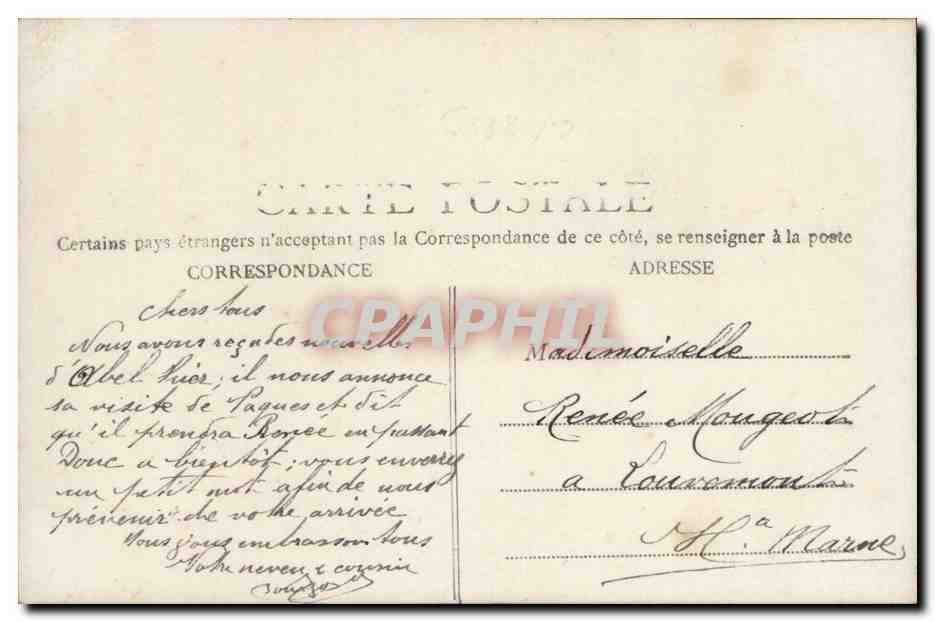 CARTE POSTALE
Certains pays étrangers n'acceptant pas la Correspondance de ce côté, se renseigner à la poste
CORRESPONDANCE
Chers tous
Nous avons reçu des nouvelles
d'Abel hier; il nous annonce
sa visite de Paques et dit
qu'il prendra Renée en passant
Donc a bientôt; vous enverrez
un petit mot afin de nous
prévenir de votre arrivée
Nous vous embrassons tous
Votre neveu & cousin
ADRESSE
Mademoiselle
Renée Mougeot
a Louvemont
Hᵗᵉ Marne
CPAPHIL